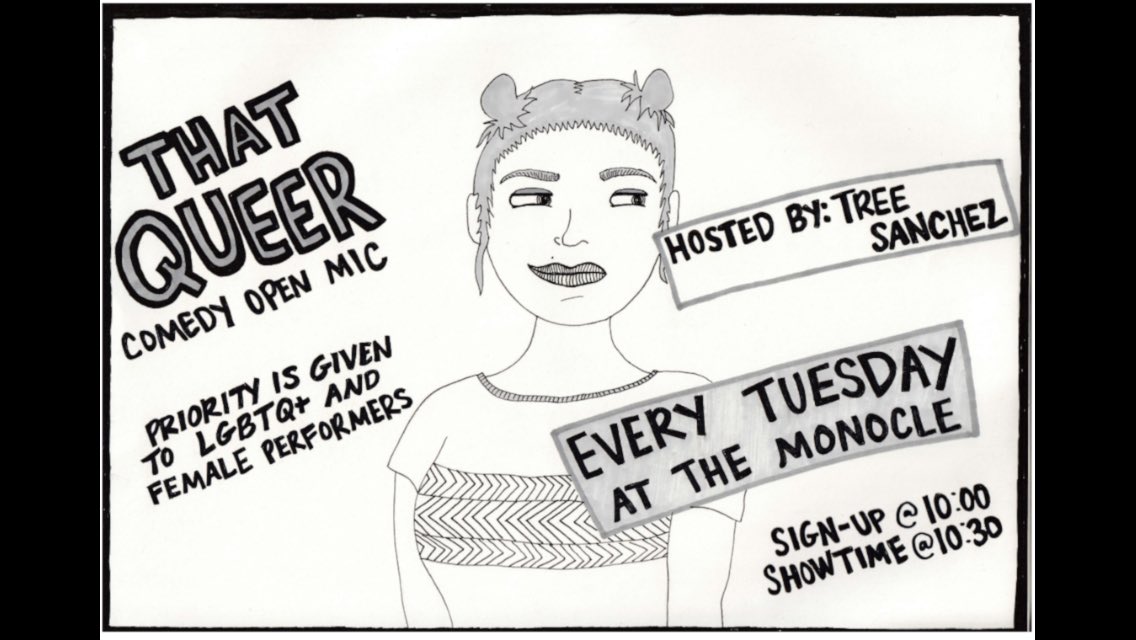 THAT
QUEER
COMEDY OPEN MIC
PRIORITY IS GIVEN
TO LGBTQ+ AND
FEMALE PERFORMERS
HOSTED BY: TREE
SANCHEZ
EVERY TUESDAY
AT THE MONOCLE
SIGN-UP @ 10:00
SHOWTIME @ 10:30